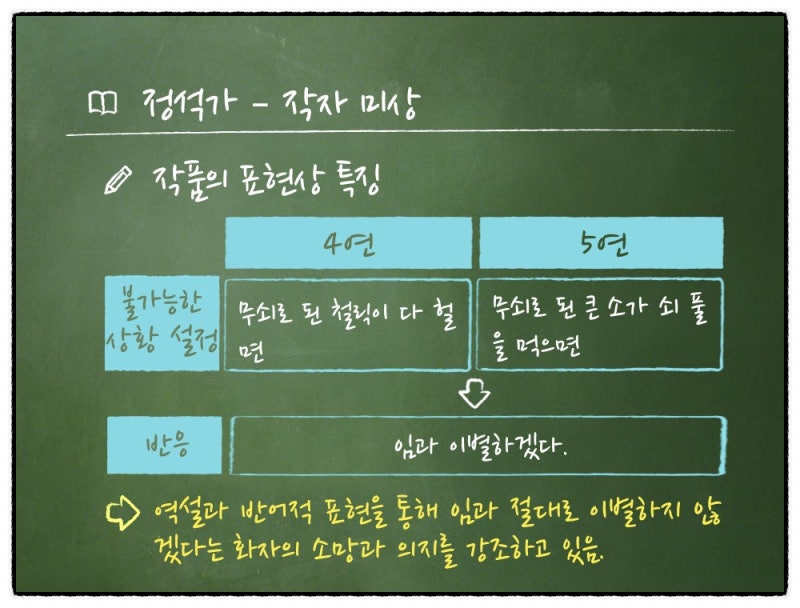 정석가 - 작자 미상
작품의 표현상 특징
4연
5연
불가능한
상황 설정
무쇠로 된 철릭이 다 헐
면
무쇠로 된 큰 소가 쇠 풀
을 먹으면
반응
임과 이별하겠다.
역설과 반어적 표현을 통해 임과 절대로 이별하지 않
겠다는 화자의 소망과 의지를 강조하고 있음.